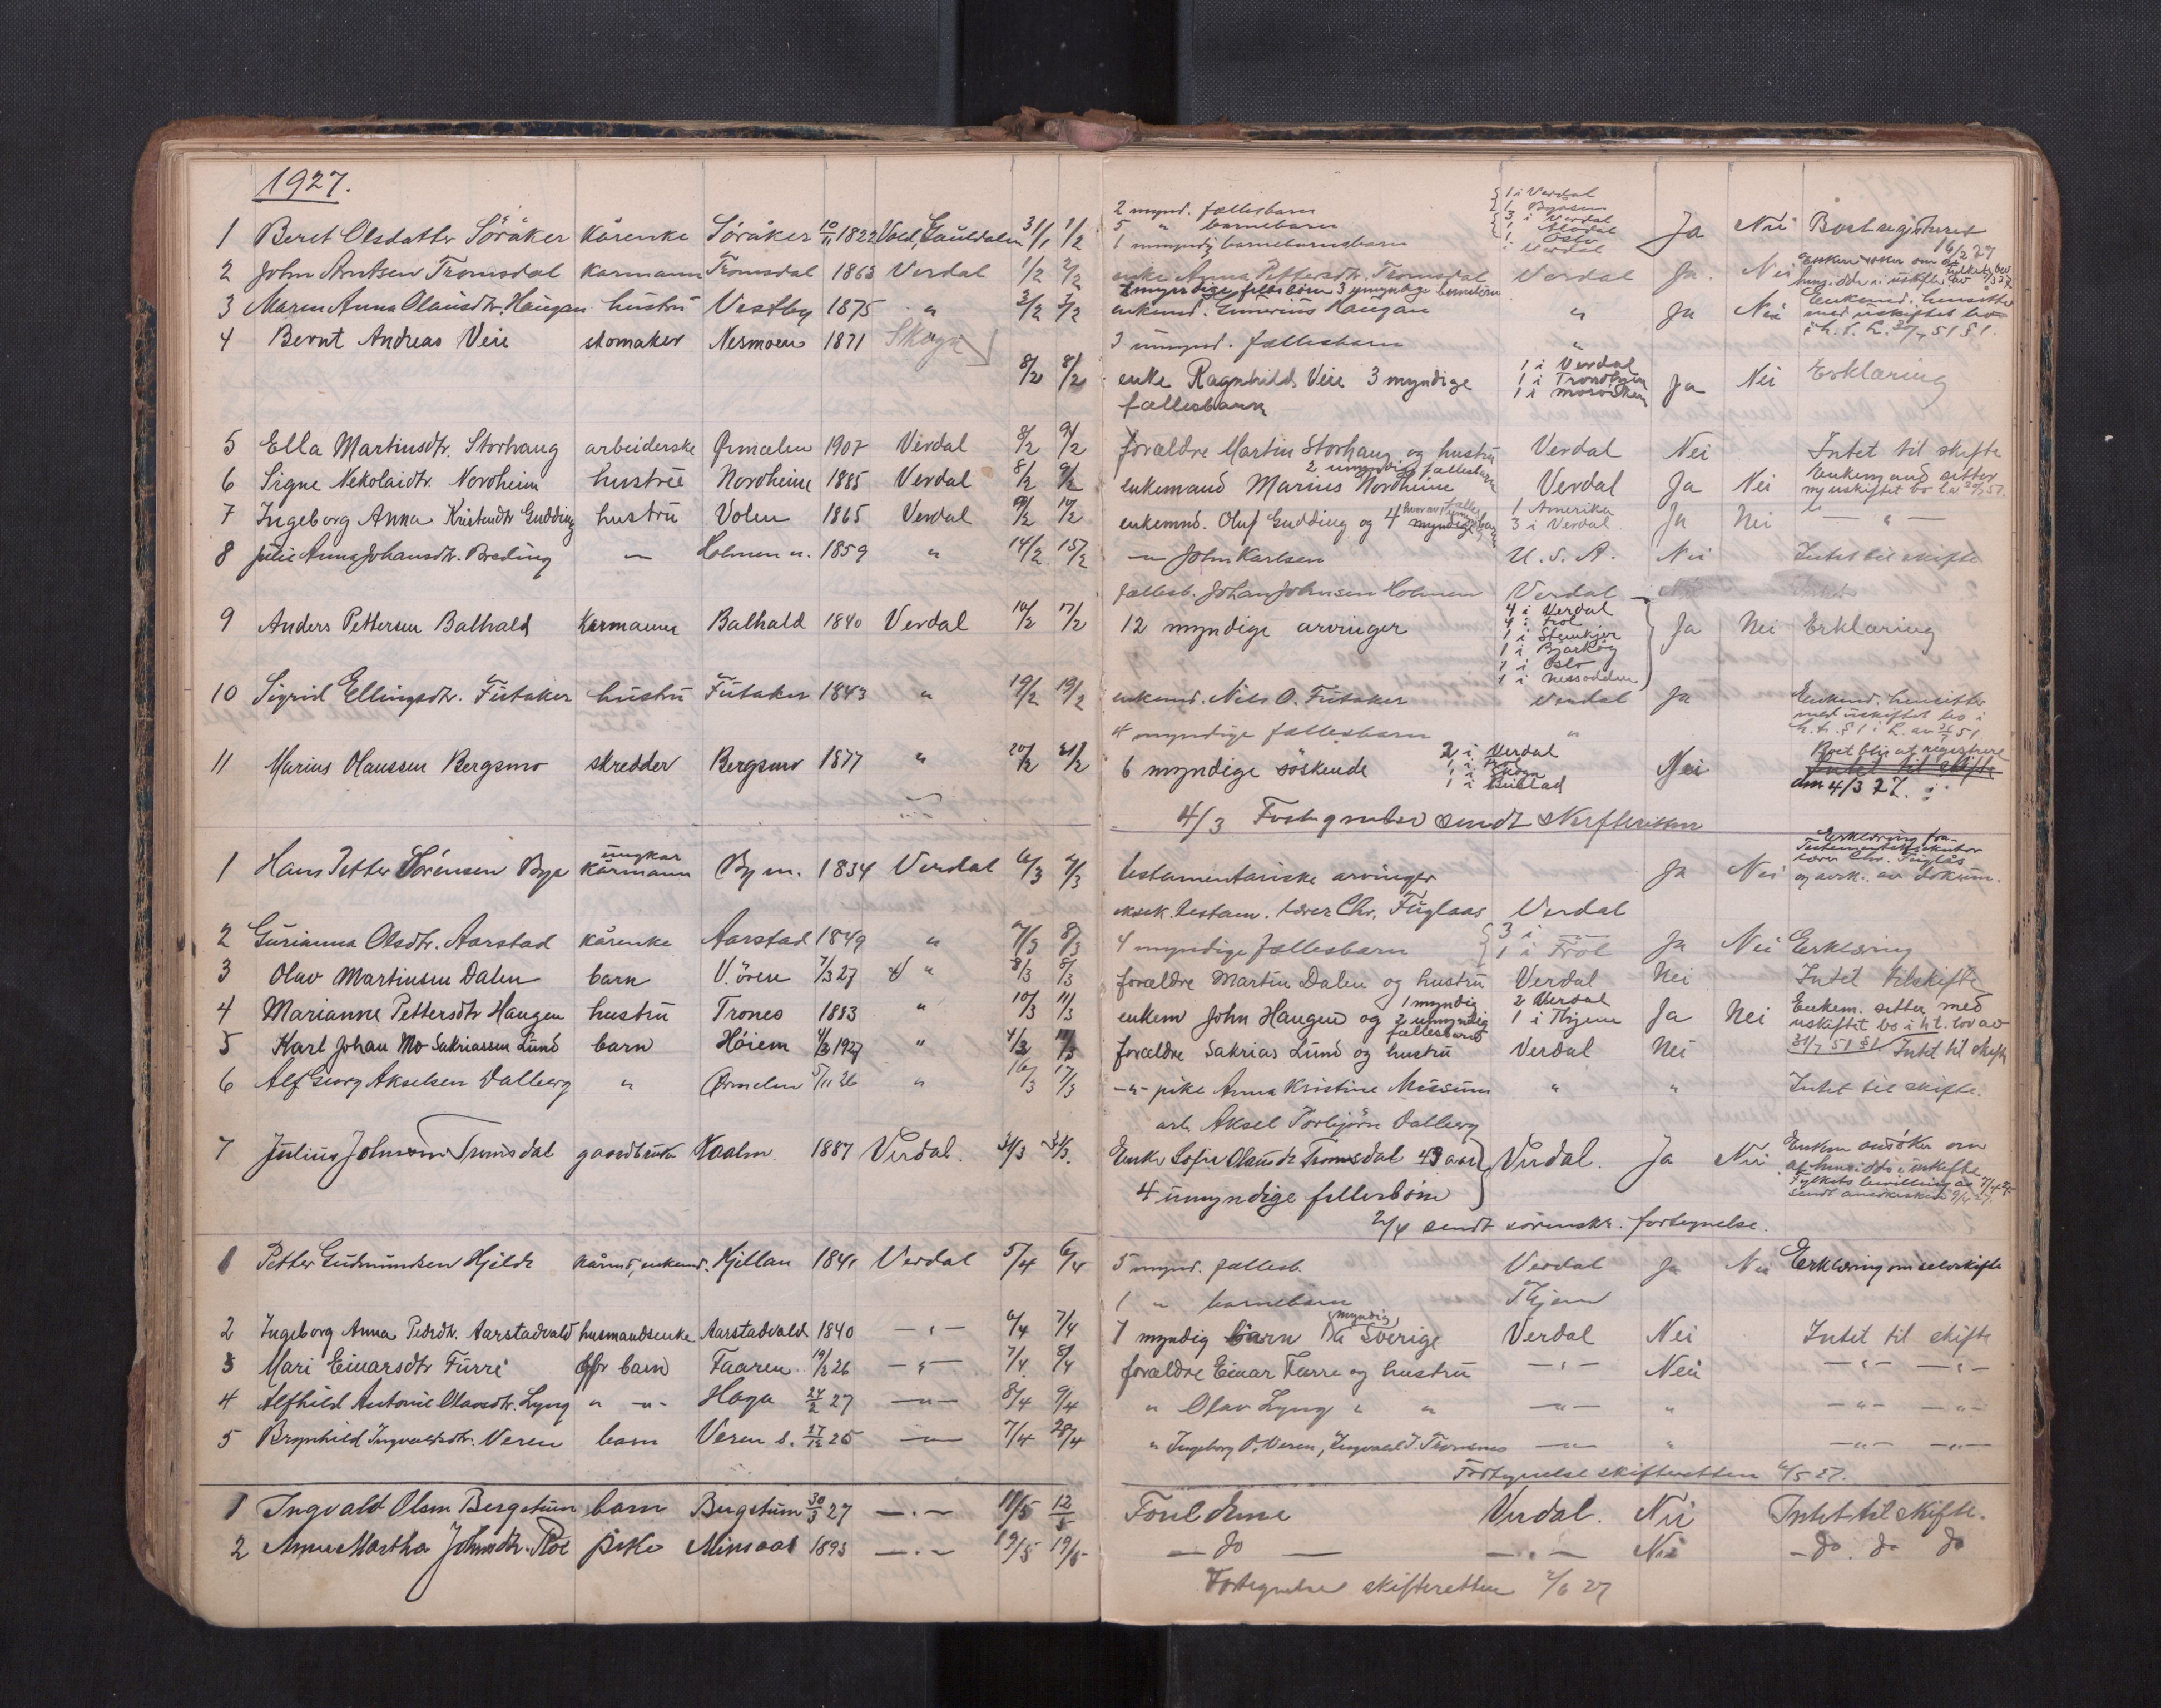 1927.
1 Beret Olsdatter Söråker kårenke Söråker 10/11 1822 Vold, Gauldalen 31/1 1/2 2 mynd. fællesbarn 1 i Verdal
5 " barnebarn 3 i Verdal Ja Nei
1 umyndig barnebarnsbarn Verdal
16/2 27
2 John Arntsen Tromsdal karmann Tromsdal 1863 Verdal 1/2 2/2 enke Anna Pettersdtr. Tromsdal Verdal Ja. Nei
3 Maren Anna Olausdtr. Haugan hustru Vestby 1875 " 2/2 3/2 enkemd. Haugan " Ja Nei Enkemd. hensitter
med uskiftet bo
4 Bernt Andreas Veie skomaker Nesmoen 1871 Skogn 3 umynd. fællesbarn "
8/2 8/2 enke Ragnhild Veie 3 myndige 1 i Verdal Ja Nei Erklæring
fællesbarn
5 Ella Martinsdtr. Storhaug arbeiderske Ørmelen 1907 Verdal 8/2 9/2 forældre Martin Storhaug og hustru Verdal Nei Intet til skifte
2 umyndig fællesbarn
6 Signe Nekolaidtr. Nordheim hustru Nordheim 1885 Verdal 8/2 9/2 enkemand Marius Nordheim Verdal Ja Nei Enkemand sitter
7 Ingeborg Anna Kristendtr Gudding hustru Volen 1865 Verdal 9/2 enkemnd. Oluf Gudding og 4 myndige 1 Amerika
3 i Verdal Ja Nei — " —
8 Julie Anna Johansdtr. Breding — Holmen u. 1859 " 14/2 15/2 — " John Karlsen U. S. A. Nei Intet til skifte
fællesb. Johan Johnsen Holmen Verdal
9 Anders Pettersen Balhald Karmann Balhald 1840 Verdal 16/2 17/2 12 myndige arvinger 4 i Verdal
4 i Frol
1 i Stenkjer
1 i Bjarkøy
1 i Oslo
1 i Nessodden Ja Nei Erklæring
10 Sigrid Ellingsdtr. Futaker hustru Futaker 1843 " 19/2 19/2 enkemd. Nils O. Futaker Verdal Ja Enkemd. hensitter
med uskiftet bo i
4 myndige fællesbarn "
11 Marius Olaussen Bergsmo skredder Bergsmo 1877 " 20/2 21/2 6 myndige söskende 2 i Verdal
1 i Frol
1 i Skogn Nei Boet blir at registrere
Intet til skifte
den 4/3 27.
4/3 Fortegnelse sendt Skifteretten
1 Hans Petter Sörensen Bye ungkar
kårmann By m. 1834 Verdal 6/3 7/3 testamentariske arvinger Ja Nei Erklæring fra
Testamentseksekutor
lærer Chr. Fuglås
og avsk. av dokum.
eksek. testam. lærer Chr. Fuglaas Verdal
2 Gurianna Olsdtr. Aarstad kårenke Aarstad 1849 " 7/3 8/3 4 myndige fællesbarn 3 i —
1 i Frol Ja Nei Erklæring
3 Olav Martinsen Dalen barn V. ören 7/3 27 " 8/3 8/3 forældre Martin Dalen og hustru Verdal Nei Intet tilskifte
4 Marianne Pettersdtr Haugen hustru Trones 1883 " 10/3 11/3 enkem John Haugen og 1 myndig
2 umyndig
fællesbarn 2 Verdal
1 i Thjem Ja Nei Enkem. sitter med
uskiftet bo i h.t. lov av
31/7 51 §1.
5 Karl Johan Mo Sakriassen Lund barn Höiem 4/3 1927 " forældre Sakrias Lund og hustru Verdal Nei Intet til skifte
6 Alf Georg Akselsen Dalberg " Ørmelen 5/11 26 " 16/3 17/3 — " — pike Anna Kristine Mussum " " Intet til skifte.
arb. Aksel Torbjörn Dalberg
7 Julius Johnsen Tromsdal gaardbruker Kvalm 1887 Verdal. 31/3 31/3. Enke Sofie Olausdtr Tromsdal 43 aar Verdal. Ja Nei Enken ansöker om
4 umyndige fellesbörn
2/4 sendt sorenskr. fortegnelse.
1 Petter Gudmundsen Hjelde kårmd, enkemd. Kjellan 1841 Verdal 5/4 6/4 5 mynd. fællesb. Verdal Ja Nei Erklæring om selvskifte
1 " barnebarn Thjem
2 Ingeborg Anna Pedrdtr. Aarstadvald husmandsenke Aarstadvald 1840 — " — 6/4 7/4 1 myndig barn i Sverige Verdal Nei Intet til skifte
3 Mari Einarsdtr Furre barn Faaren 19/3 26 — " — 7/4. 8/4 forældre Einar Furre og hustru — " — Nei — " — — " —
4 Alfhild Antonie Olavsdtr. Lyng " — " — Haga 24/2 27 — " — 8/4 9/4 " Olav Lyng " " — " — " — " — — " —
5 Brynhild Ingvaldsdtr. Veren barn Veren s. 27/12 25 — " — 7/4 28/4 " Ingeborg P. Veren, Ingvald J. Tromsmo — " — " — " — — " —
Fortegnelse skifteretten 6/5 27.
1 Ingvald Olsen Bergstum barn Bergstum 30/3 27 — " — 11/5 12/5 Foreldrene Verdal. Nei Intet til skifte.
2 Anne Martha Johnsdtr. Roe pike Minsaas 1893 — " — 19/5 19/5 — do — — " — Nei — do. do do
Fortegnelse skifteretten 2/6 27